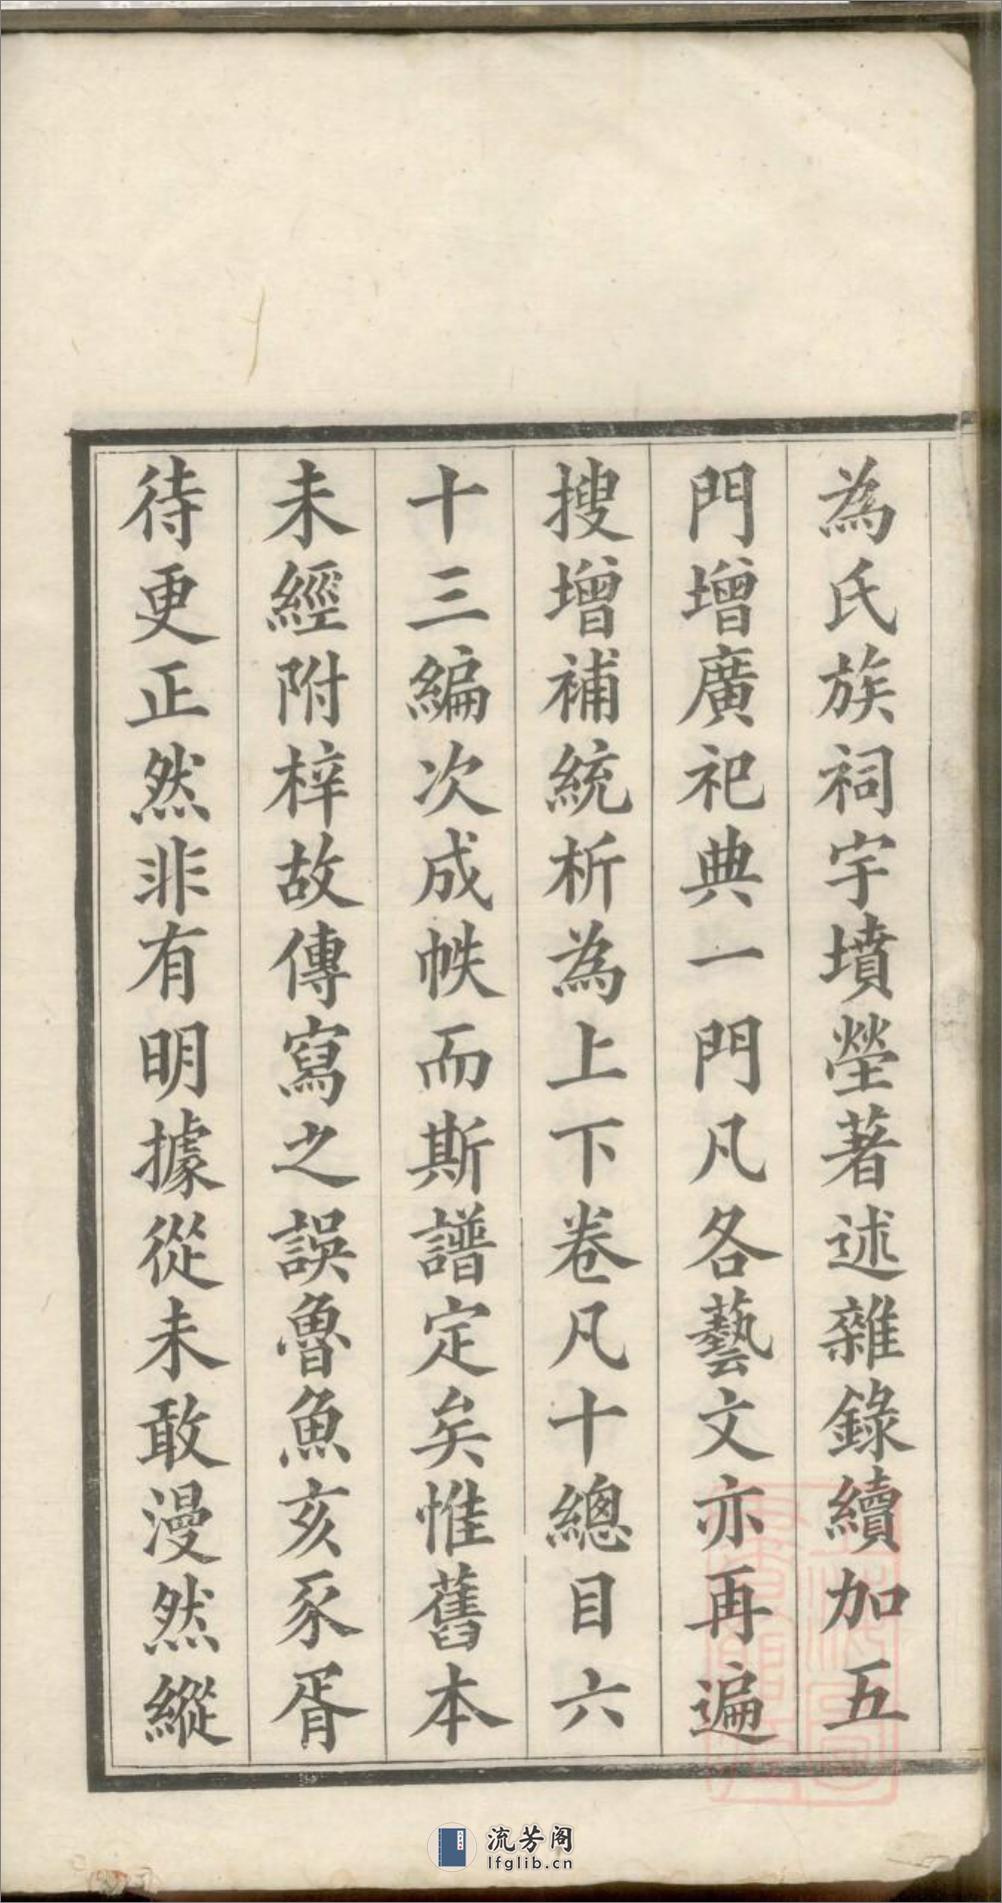 為氏族祠宇墳塋著述雜錄續加五
門增廣祀典一門凡各藝文亦再遍
搜增補統析為上下卷凡十總目六
十三編次成帙而斯譜定矣惟舊本
未經附梓故傳寫之誤魯魚亥豕胥
待更正然非有明據從未敢漫然縱
流芳阁
lfglib.cn